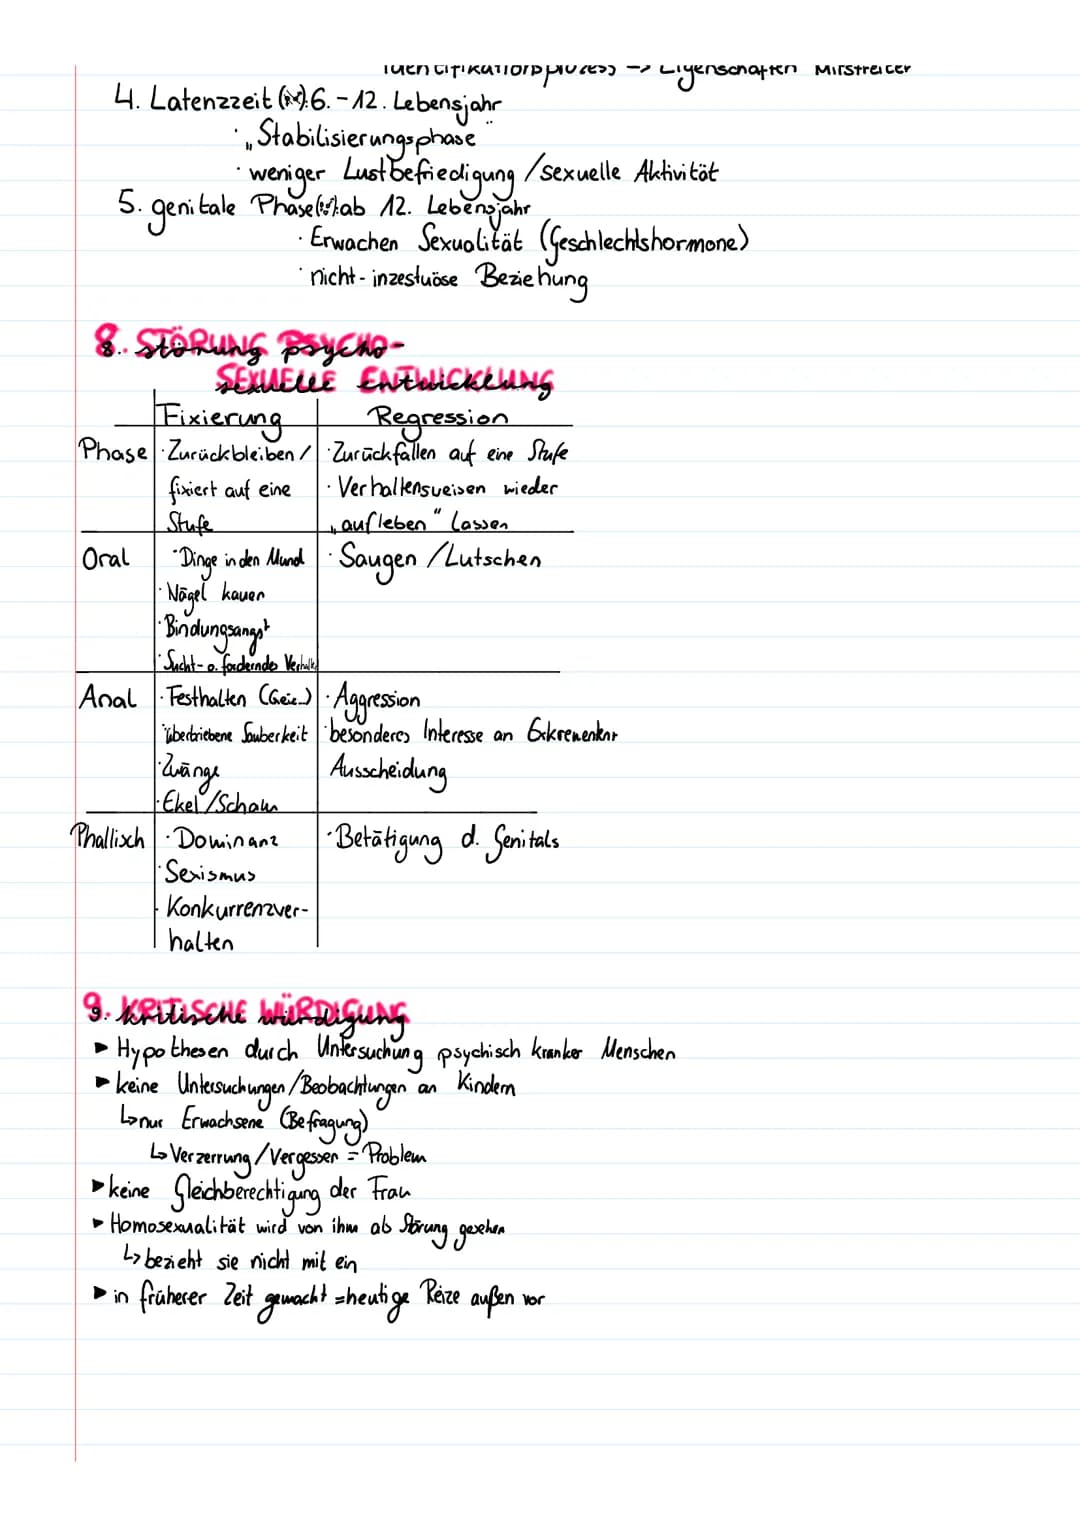 Identifikationsprozess -> Eigenschaften Mitstreiter
4. Latenzzeit 6. - 12. Lebensjahr
· „Stabilisierungsphase"
· weniger Lustbefriedigung / sexuelle Aktivität
5. genitale Phase ab 12. Lebensjahr
· Erwachen Sexualität (Geschlechtshormone)
· nicht-inzestuöse Beziehung
8. STÖRUNG PSYCHO-
SEXUELLE ENTWICKLUNG
Fixierung Regression
Phase · Zurückbleiben / · Zurückfallen auf eine Stufe
fixiert auf eine · Verhaltensweisen wieder
Stufe „aufleben" lassen
Oral · Dinge in den Mund · Saugen / Lutschen
· Nägel kauen
· Bindungsangst
· Sucht- o. forderndes Verhalten
Anal · Festhalten (Geiz) · Aggression
· übertriebene Sauberkeit · besonderes Interesse an Exkrementen
· Zwänge Ausscheidung
· Ekel / Scham
Phallisch · Dominanz · Betätigung d. Genitals
· Sexismus
· Konkurrenzver-
halten
9. KRITISCHE WÜRDIGUNG
▸ Hypothesen durch Untersuchung psychisch kranker Menschen
▸ keine Untersuchungen / Beobachtungen an Kindern
↳ nur Erwachsene (Befragung)
↳ Verzerrung / Vergessen = Problem
▸ keine Gleichberechtigung der Frau
▸ Homosexualität wird von ihm ab Störung gesehen
↳ bezieht sie nicht mit ein
▸ in früherer Zeit gemacht = heutige Reize außen vor